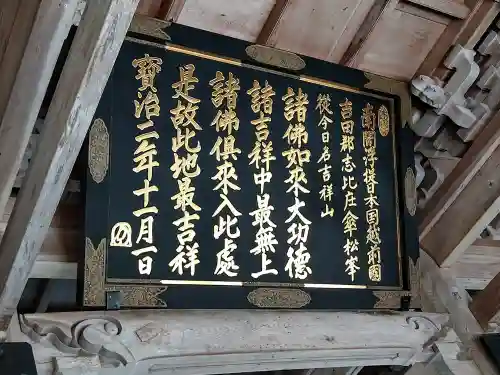 南閻浮提日本国越前国
吉田郡志比庄傘松峯
從今日名吉祥山
諸佛如來大功德
諸吉祥中最無上
諸佛俱來入此處
是故此地最吉祥
寶治二年十一月一日